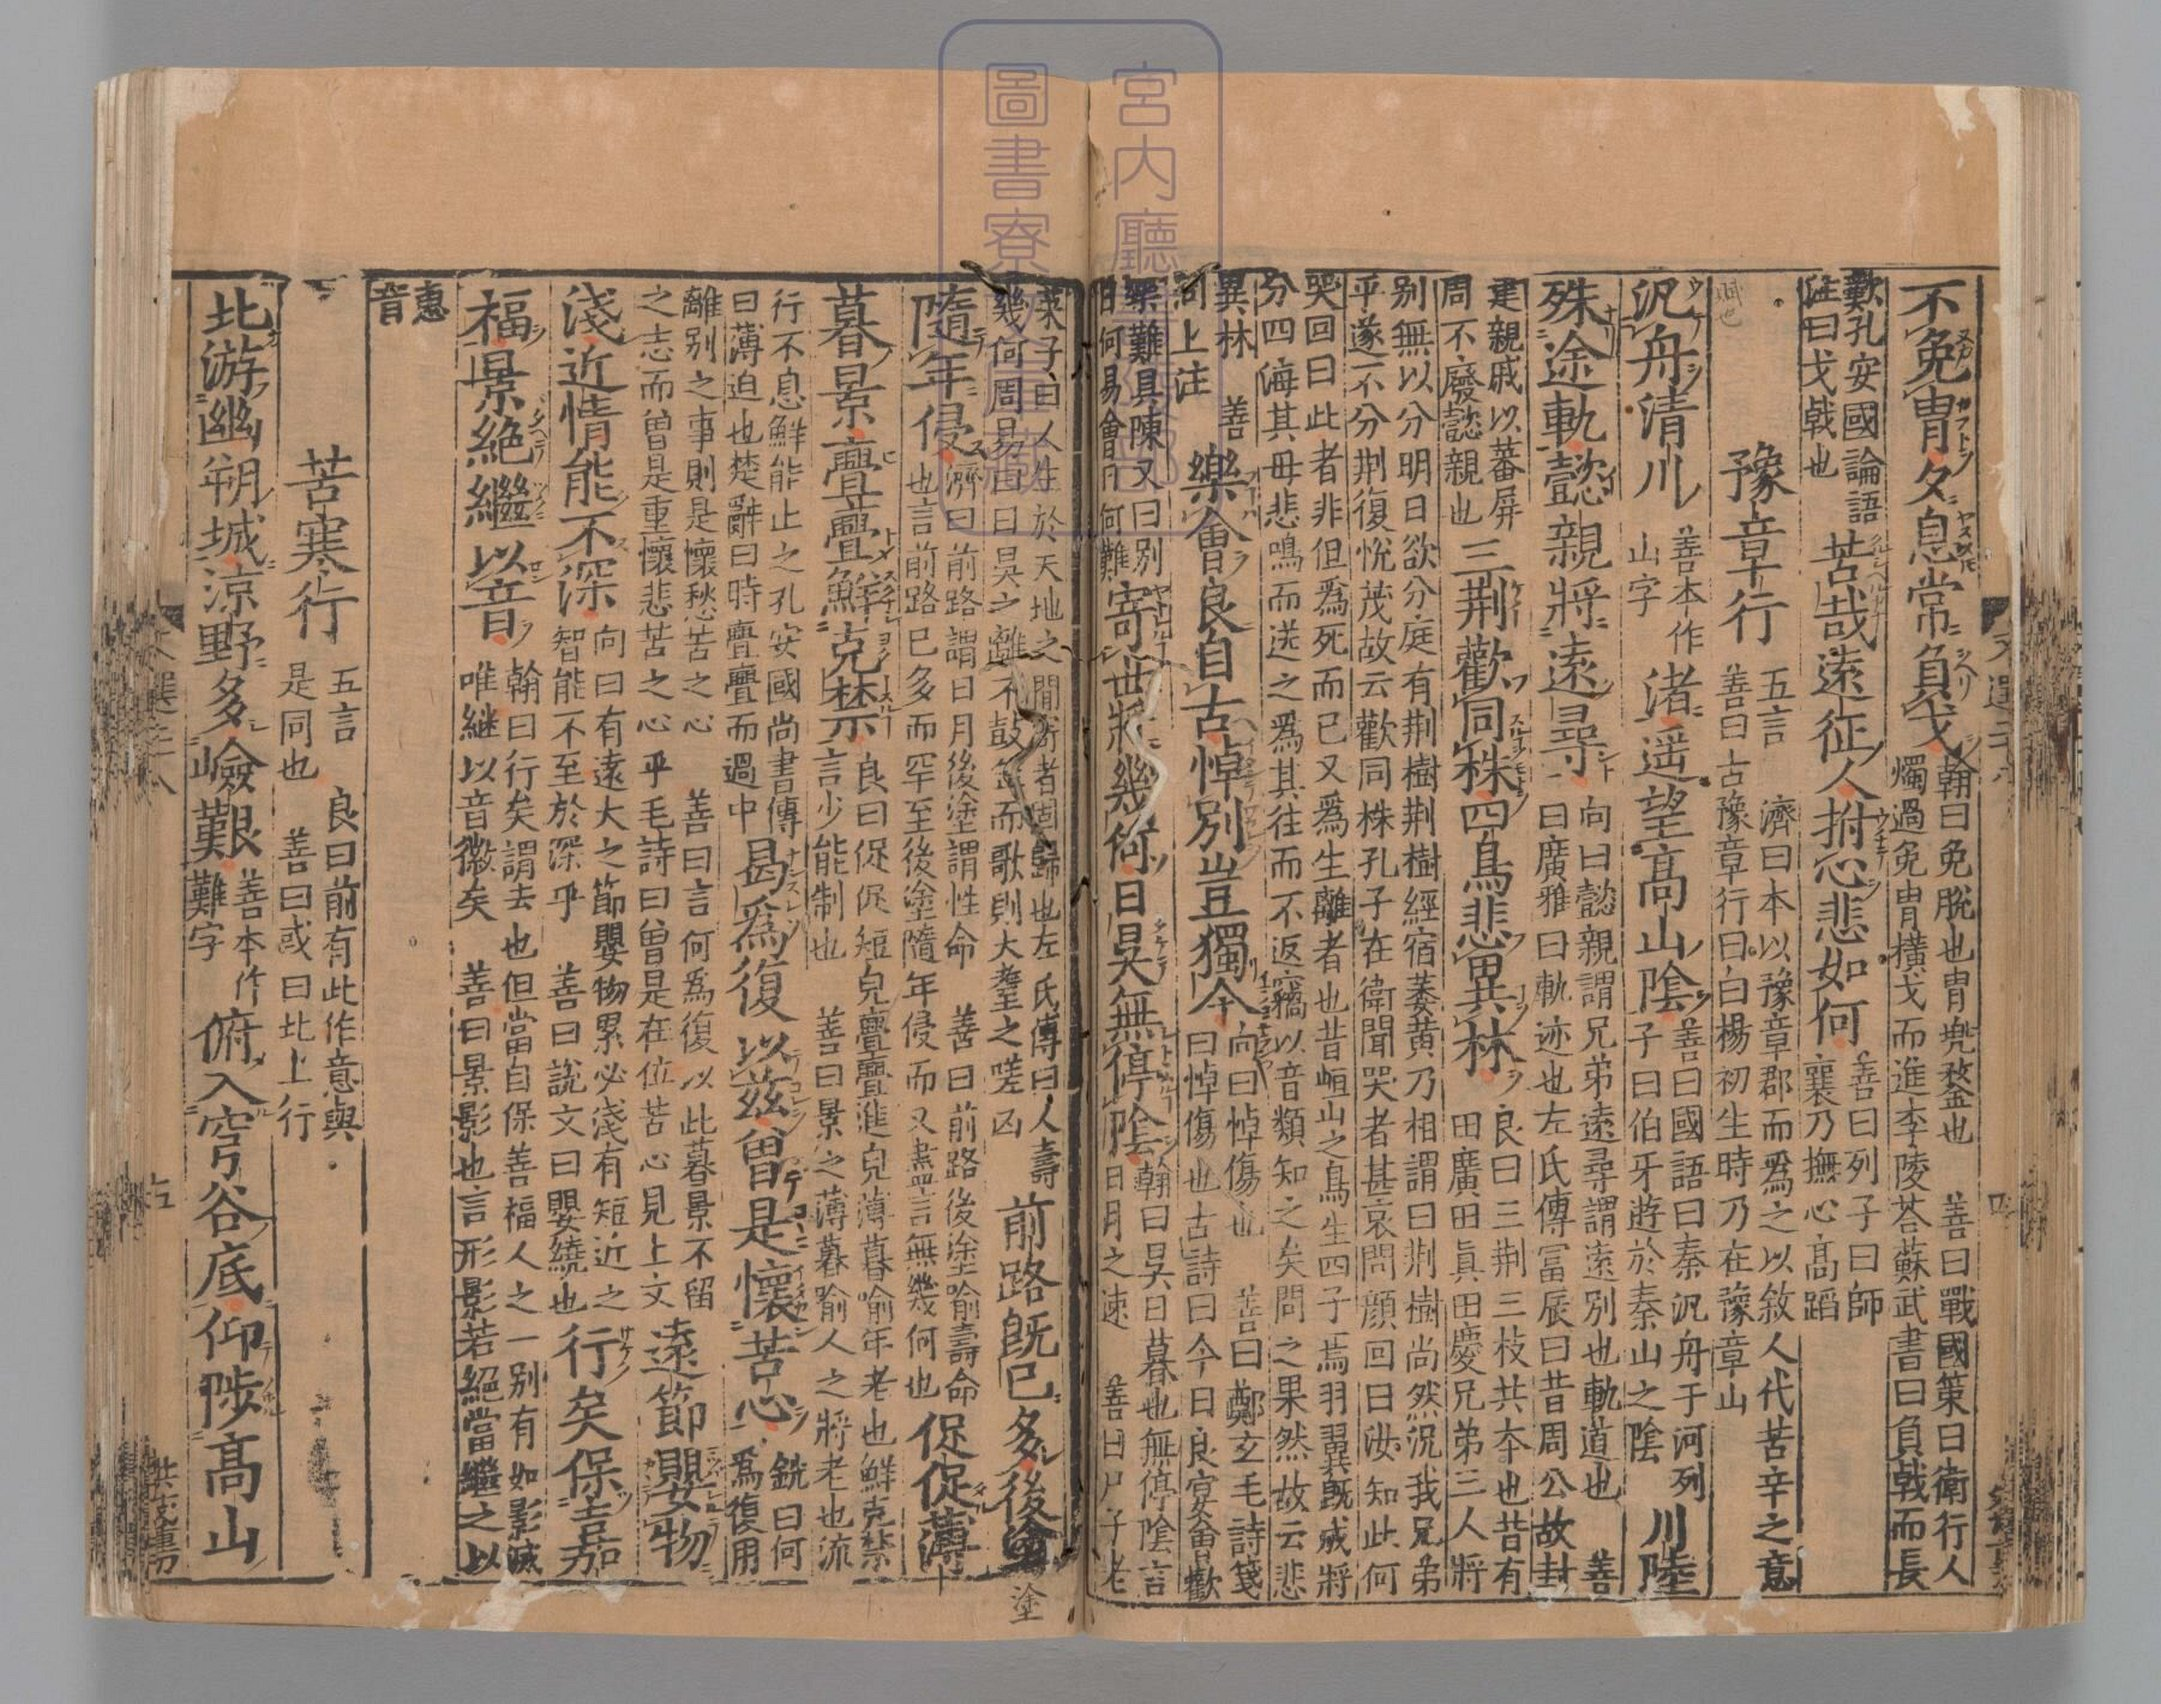 不免冑夕息常負戈翰曰免脫也冑兜鍪也 善曰戰國策曰衛行人燭過免冑橫戈而進李陵荅蘇武書曰負戟而長
歎孔安國論語注曰戈戟也苦哉遠征人拊心悲如何善曰列子曰師襄乃撫心高蹈
豫章行五言 濟曰本以豫章郡而爲之以敘人代苦辛之意善曰古豫章行曰白楊初生時乃在豫章山
汎舟清川善本作山字渚遥望高山陰善曰國語曰秦汎舟于河列子曰伯牙遊於秦山之陰川陸
殊途軌懿親將遠尋向曰懿親謂兄弟遠尋謂遠別也軌道也 善曰廣雅曰軌迹也左氏傳冨辰曰昔周公故封
建親戚以蕃屏周不廢懿親也三荆歡同株四鳥悲異林良曰三荆三枝共夲也昔有田廣田真田慶兄弟三人將
別無以分明日欲分庭有荆樹荆樹經宿萎黄乃相謂曰荆樹尚然況我兄弟乎遂不分荆復恱茂故云歡同株孔子在衛聞哭者甚哀問顔回曰汝知此何
哭回曰此者非但爲死而已又爲生離者也昔峘山之鳥生四子焉羽翼旣成將分四海其母悲鳴而送之爲其往而不返竊以音類知之矣問之果然故云悲
異林 善同上注樂會良自古悼別豈獨今向曰悼傷也 善曰鄭玄毛詩箋曰悼傷也古詩曰今日良宴會歡
樂難具陳又曰別日何易會日何難寄世將幾何日昃無停陰翰曰昃日暮也無停陰言日月之速 善曰尸子老
萊子曰人生於天地之間寄者固歸也左氏傳曰人壽幾何周易曰日昃之離不鼓缶而歌則大耋之嗟凶前路旣已多後塗
塗
隨年侵濟曰前路謂日月後塗謂性命 善曰前路後塗喻壽命也言前路已多而罕至後塗隨年侵而又盡言無幾何也促促薄
暮景亹亹鮮克禁良曰促促短皃亹亹進皃薄暮喻年老也鮮克禁言少能制也 善曰景之薄暮喻人之將老也流
行不息鮮能止之孔安國尚書傳曰薄迫也楚辭曰時亹亹而過中曷爲復以兹曾是懷苦心銑曰何爲復用
離別之事則是懷愁苦之心 善曰言何爲復以此暮景不留之志而曾是重懷悲苦之心乎毛詩曰曾是在位苦心見上文遠節嬰物
淺近情能不深向曰有遠大之節嬰物累必淺有短近之智能不至於深乎 善曰說文曰嬰繞也行矣保嘉
福景絶繼以音翰曰行矣謂去也但當自保善福人之一別有如影滅唯継以音徽矣 善曰景影也言形影若絕當繼之以
惠音
苦寒行五言 良曰前有此作意與是同也 善曰或曰北上行
北游幽朔城涼野多嶮艱善本作難字俯入穹谷底仰陟高山